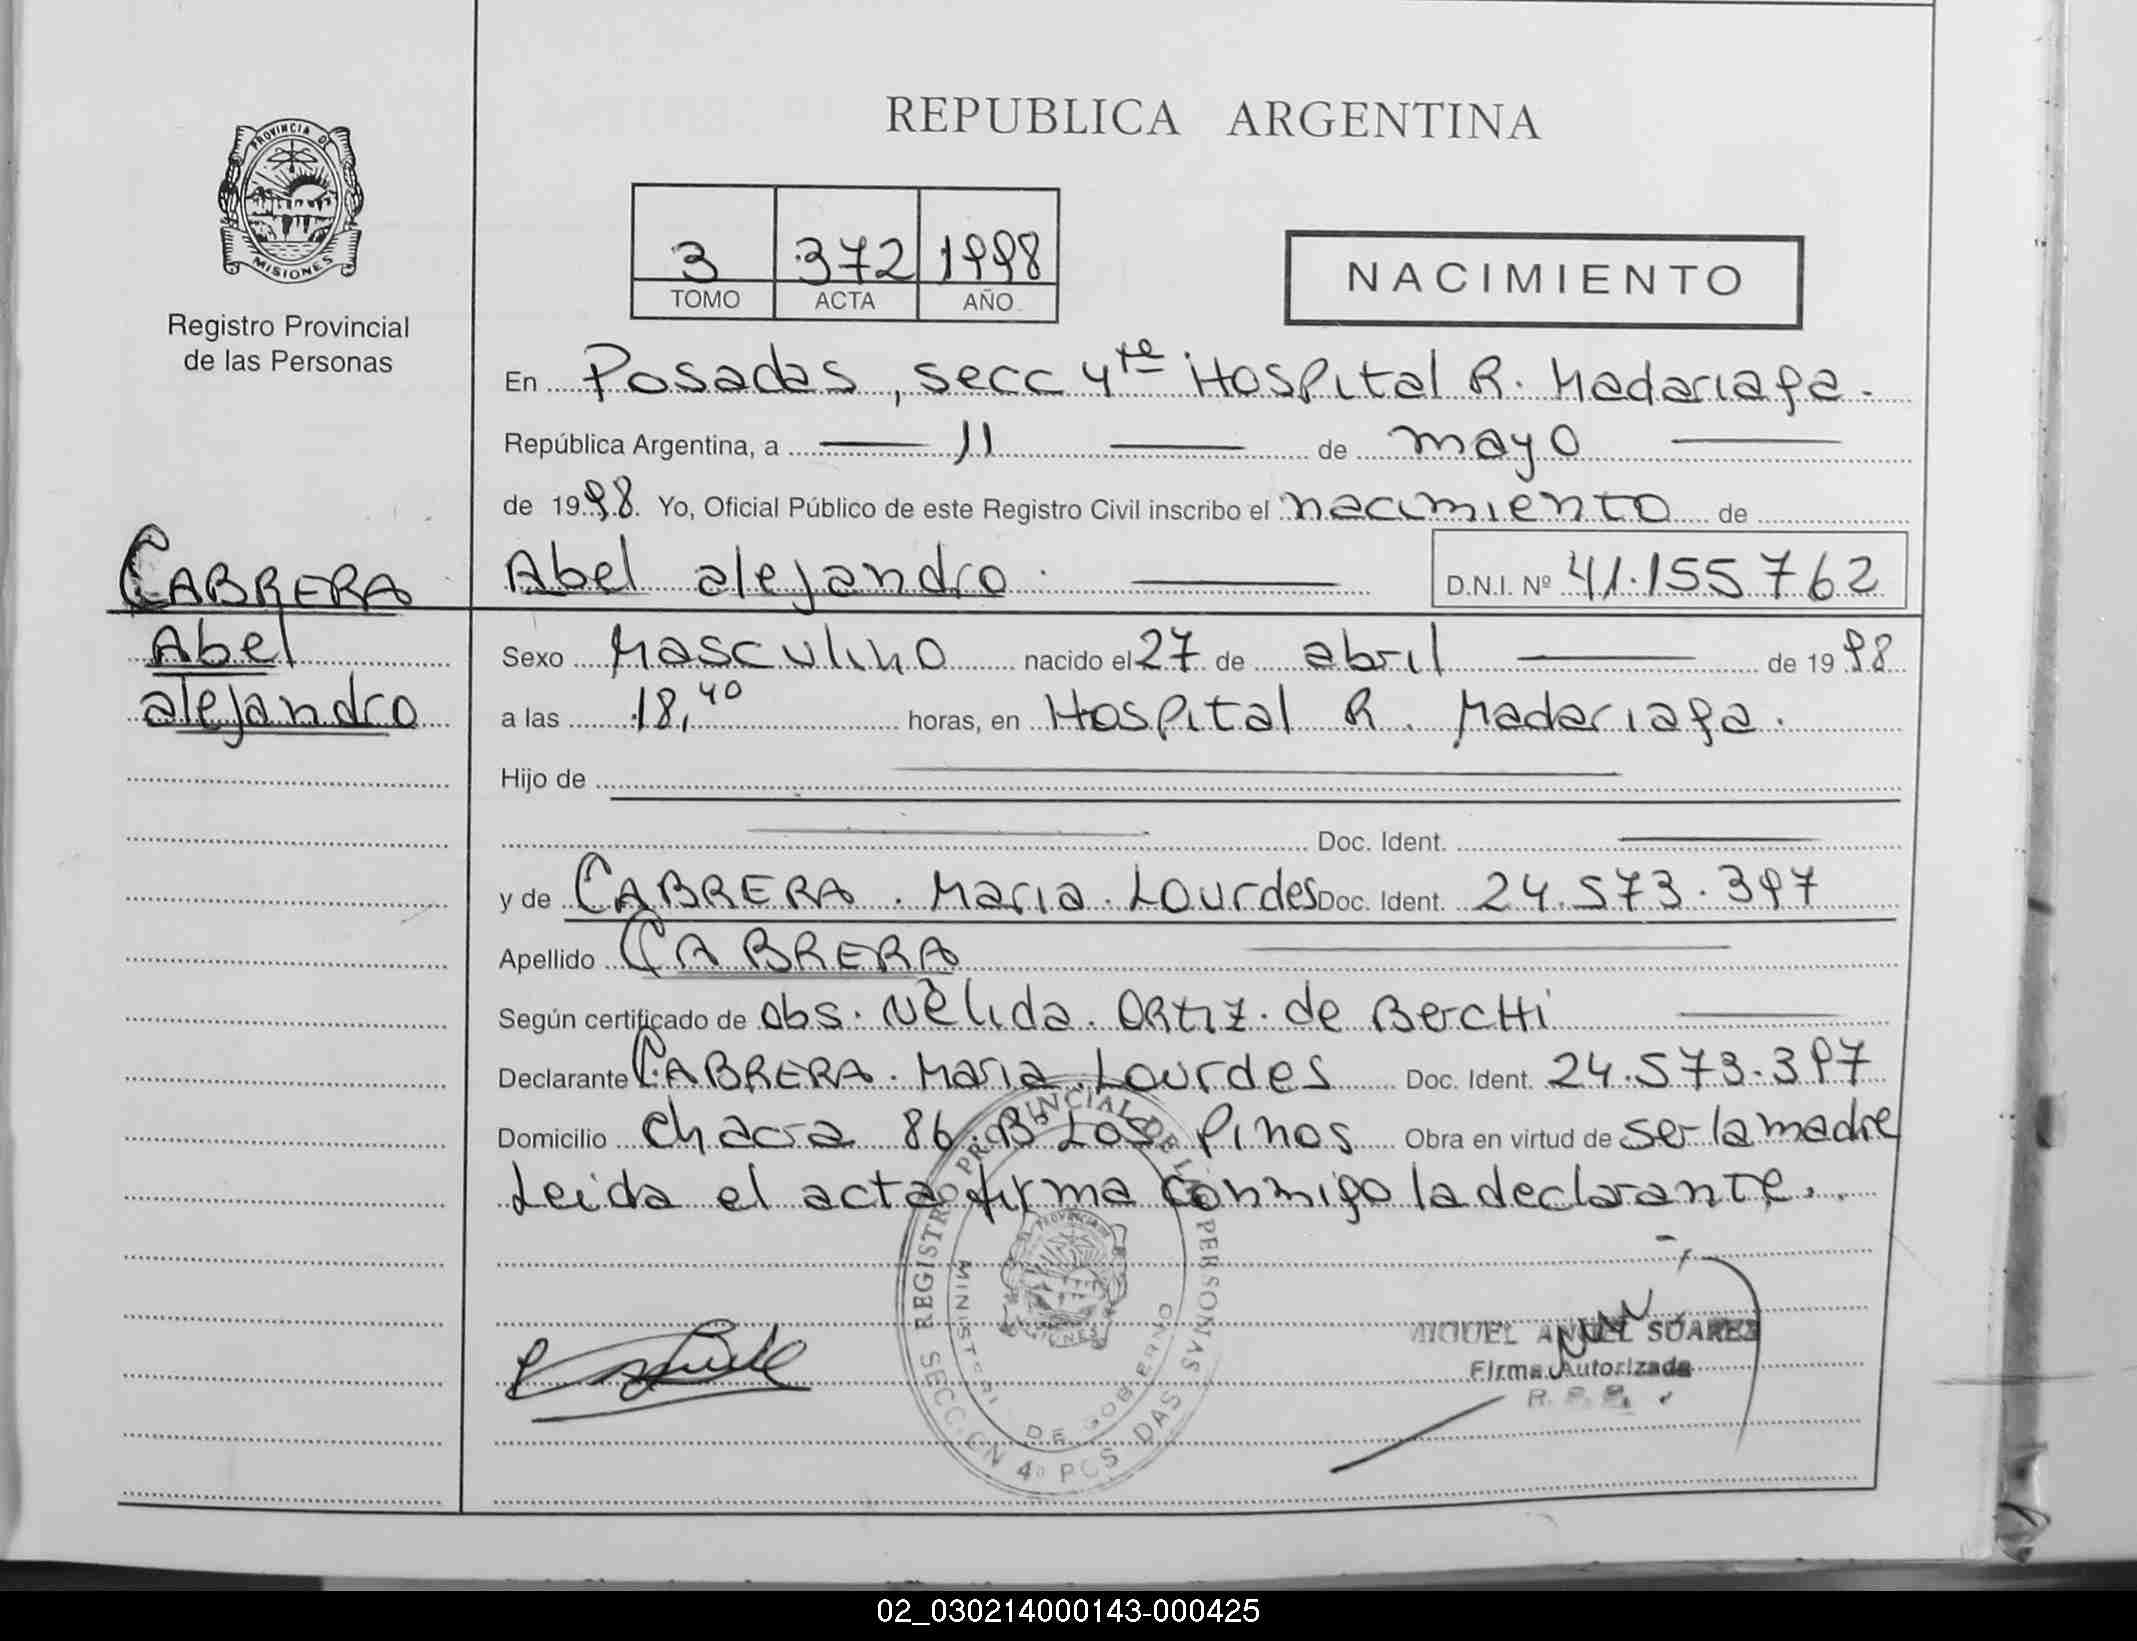 REPUBLICA ARGENTINA
PROVINCIA DE
MISIONES
Registro Provincial
de las Personas
3 372 1998
TOMO ACTA AÑO
NACIMIENTO
En Posadas, secc 4ta Hospital R. Madariaga.
República Argentina, a 11 de mayo
de 1998. Yo, Oficial Público de este Registro Civil inscribo el nacimiento de
CABRERA
Abel
alejandro
Abel alejandro. D.N.I. Nº 41.155762
Sexo Masculino nacido el 27 de abril de 1998
a las 18,40 horas, en Hospital R. Madariaga.
Hijo de
Doc. Ident.
y de CABRERA. Maria. Lourdes Doc. Ident. 24.573.397
Apellido CABRERA
Según certificado de Obs. Nélida. Ortiz. de BercHi
Declarante CABRERA. Maria. Lourdes Doc. Ident. 24.573.397
Domicilio chacra 86. Bº Los Pinos Obra en virtud de ser la madre
Leida el acta firma conmigo la declarante.
REGISTRO PROVINCIAL DE LAS PERSONAS
MINISTERIO DE GOBIERNO
SECC. CN 4º POSADAS
MIGUEL ANGEL SUAREZ
Firma Autorizada
02_030214000143-000425